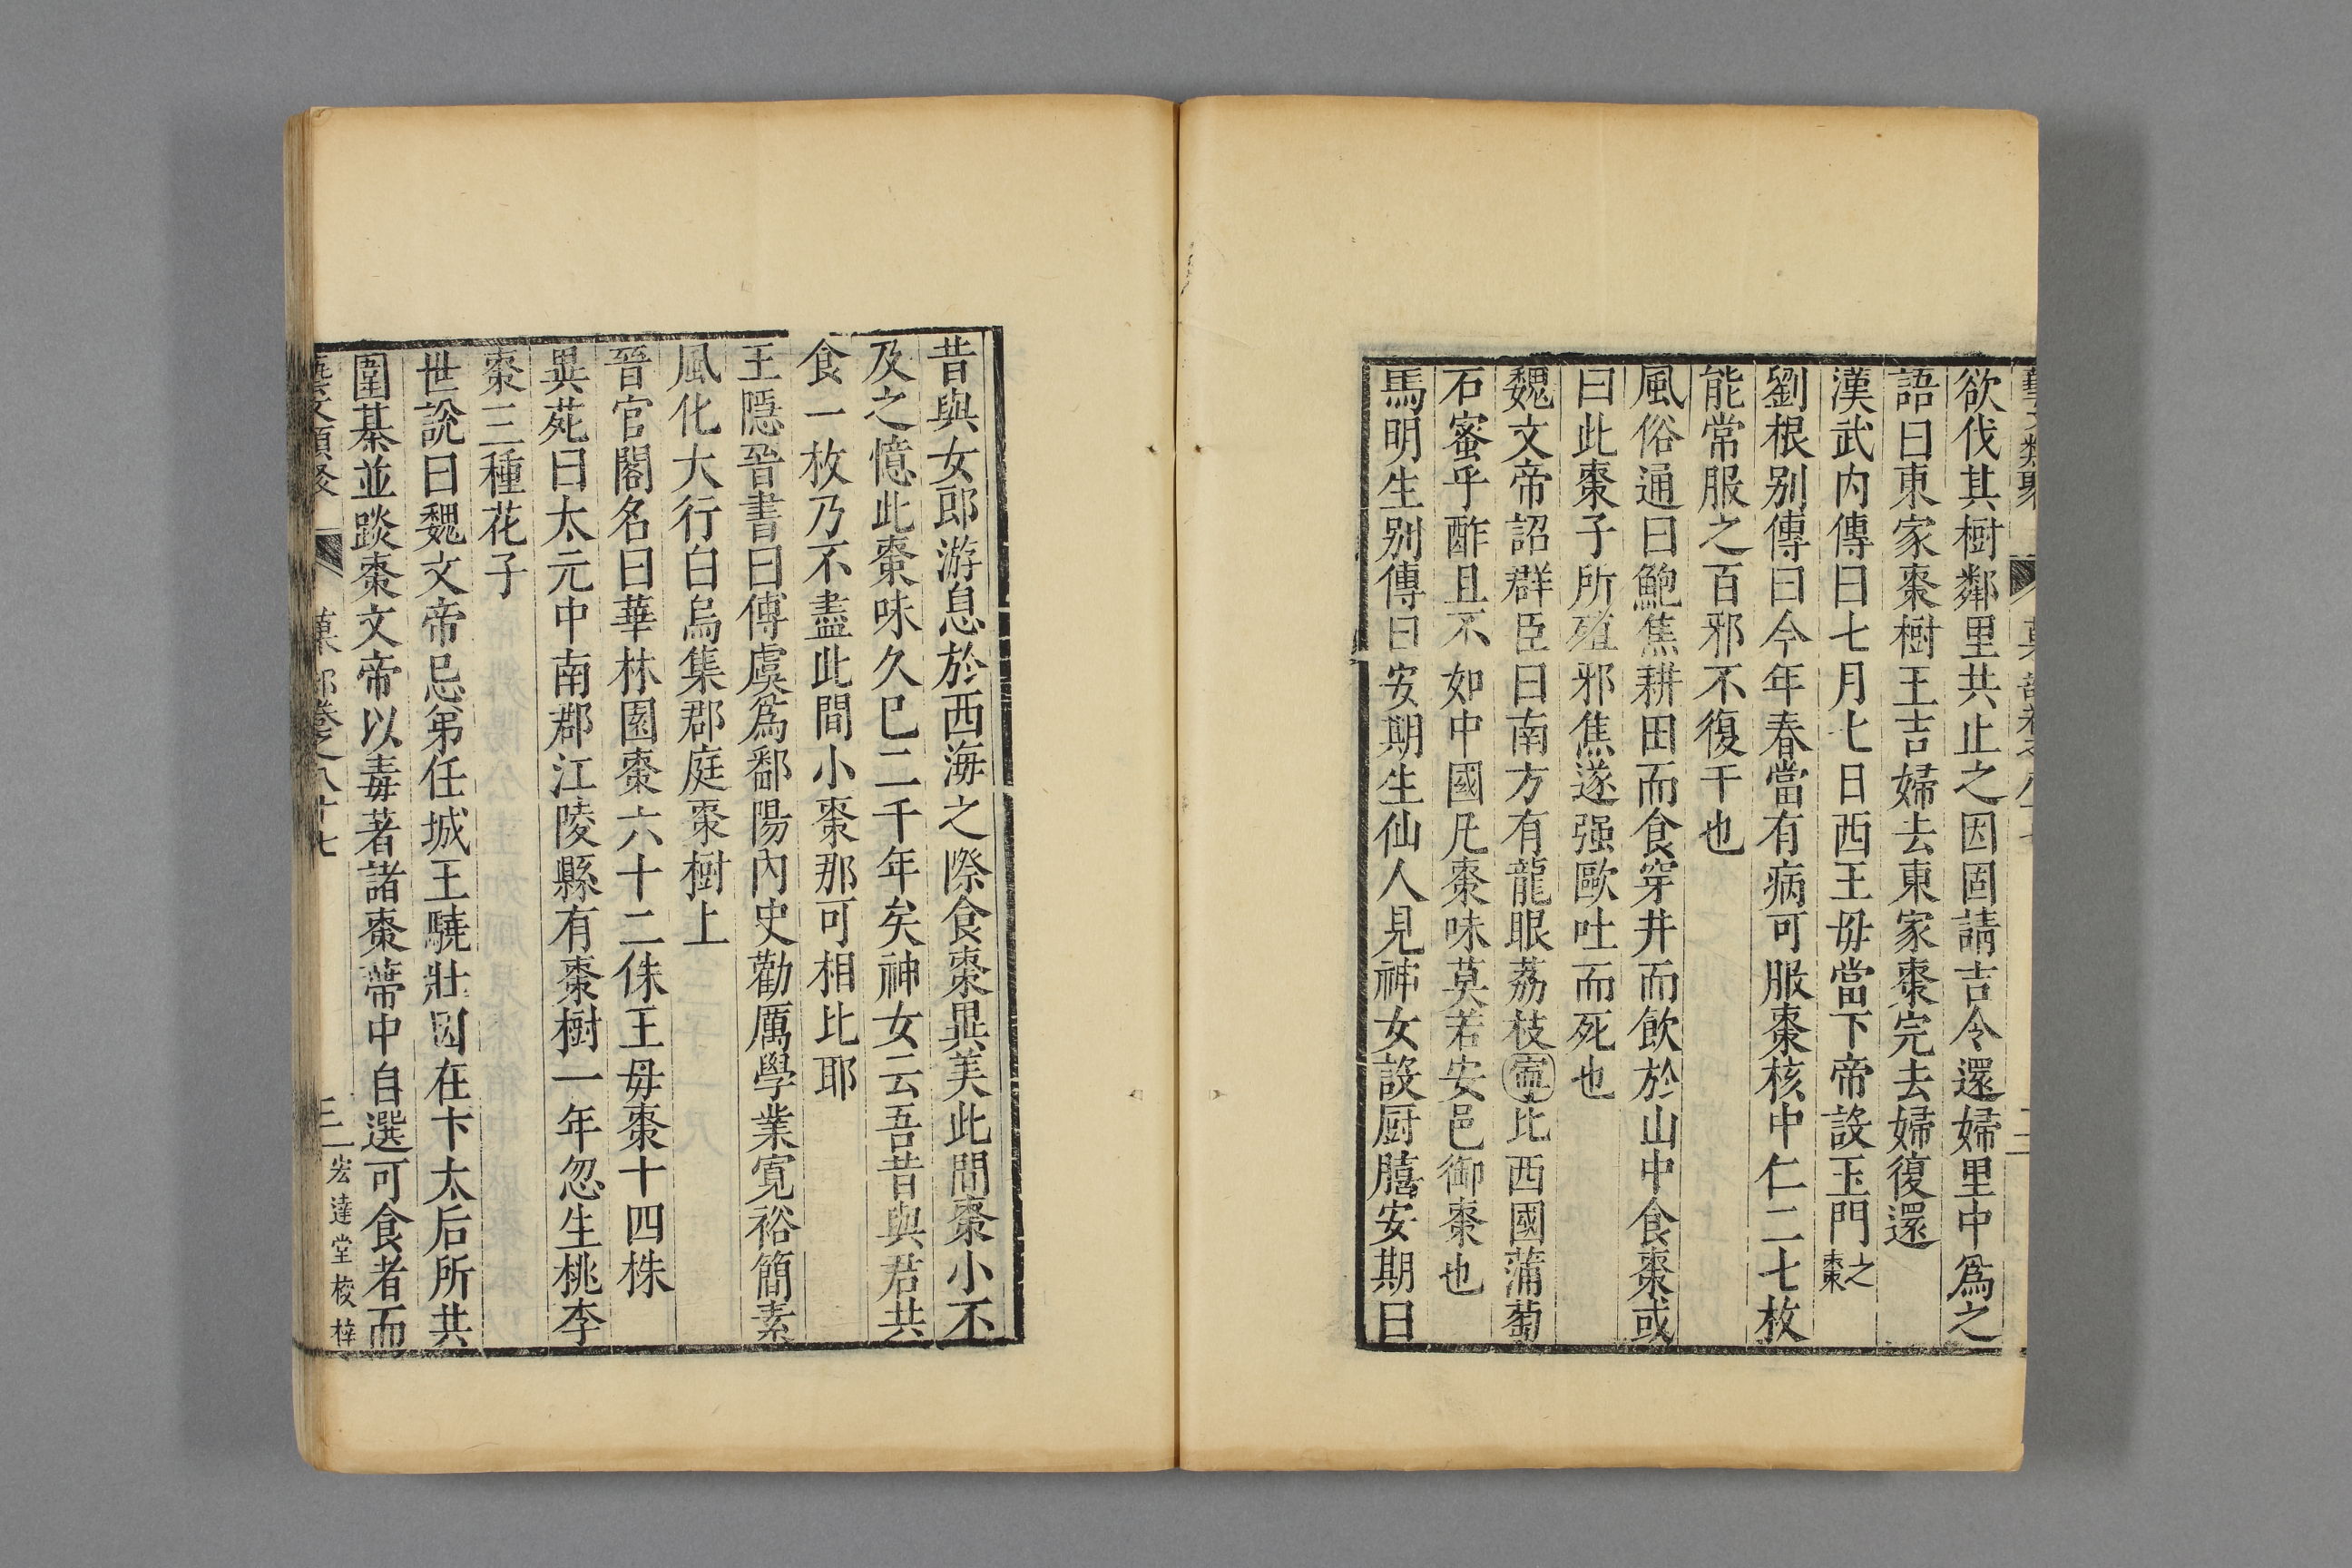 欲伐其樹鄰里共止之因固請吉令還婦里中爲之
語曰東家棗樹王吉婦去東家棗完去婦復還
漢武內傳曰七月七日西王毋當下帝設玉門之棗
劉根别傳曰今年春當有病可服棗核中仁二七枚
能常服之百邪不復干也
風俗通曰鮑焦耕田而食穿井而飲於山中食棗或
曰此棗子所殖邪焦遂强歐吐而死也
魏文帝詔群臣曰南方有龍眼荔枝寧比西國蒲萄
石蜜乎酢且不如中國凡棗味莫若安邑御棗也
馬明生别傳曰安期生仙人見神女設厨膳安期曰
昔與女郎游息於西海之際食棗異美此間棗小不
及之憶此棗味久巳二千年矣神女云吾昔與君共
食一枚乃不盡此間小棗那可相比耶
王隱晉書曰傅虞爲鄱陽內史勸厲學業寬裕簡素
風化大行白烏集郡庭棗樹上
晉官閣名曰華林園棗六十二株王毋棗十四株
異苑曰太元中南郡江陵縣有棗樹一年忽生桃李
棗三種花子
世說曰魏文帝忌弟任城王驍壯因在卞太后所共
圍棊並啖棗文帝以毒著諸棗蔕中自選可食者而
藝文類聚 菓部卷之八十七 三 宏達堂校梓